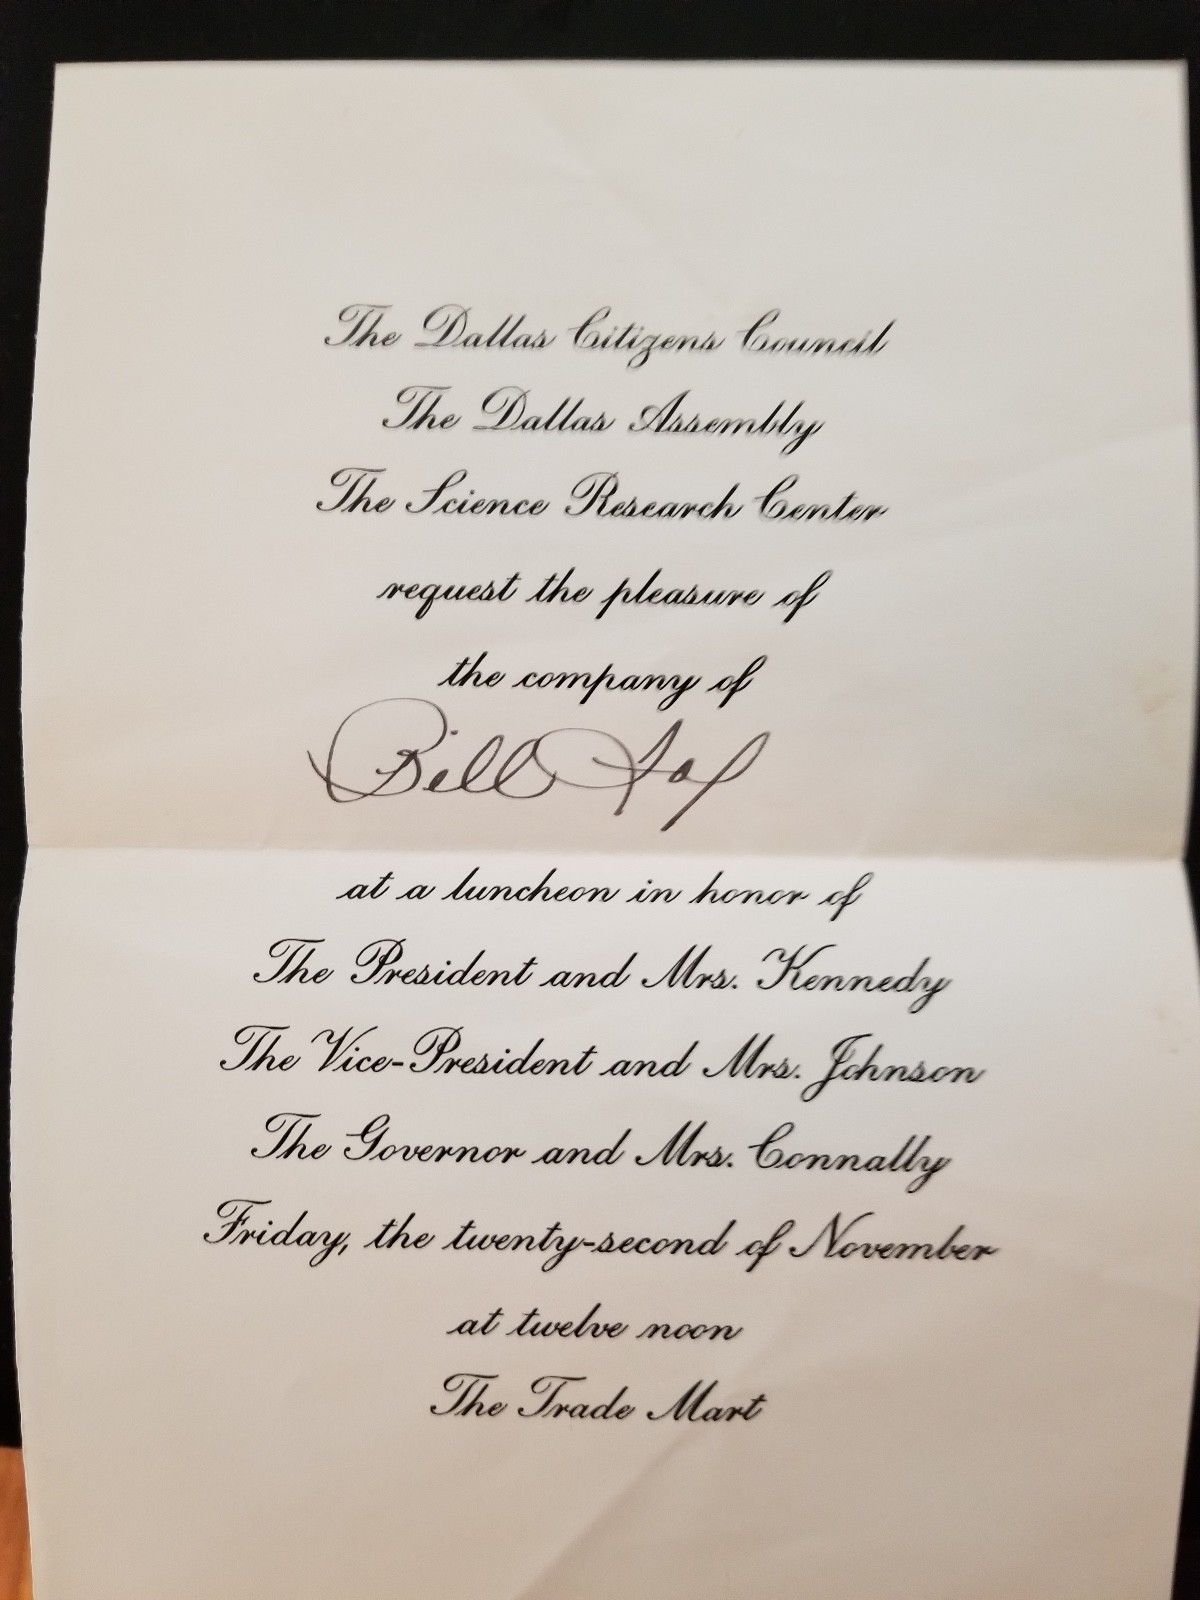 The Dallas Citizens Council
The Dallas Assembly
The Science Research Center
request the pleasure of
the company of
Bill Fox
at a luncheon in honor of
The President and Mrs. Kennedy
The Vice-President and Mrs. Johnson
The Governor and Mrs. Connally
Friday, the twenty-second of November
at twelve noon
The Trade Mart